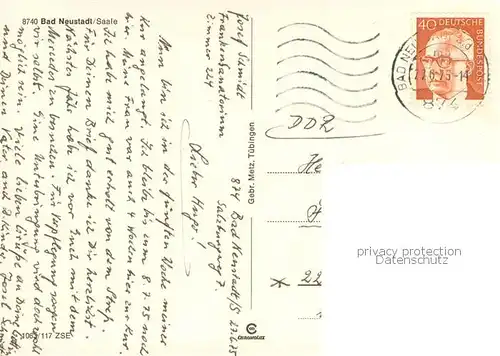 8740 Bad Neustadt/Saale
Josef Schmidt
Frankensanatorium
Zimmer 224
874 Bad Neustadt/S
Salzburgweg 7.
27.6.75
Lieber Hugo!
Nun bin ich in der fünften Woche meiner
Kur angelangt. Ich bleibe bis zum 8.7.75 noch
hier. Meine Frau war auch 4 Wochen hier zur Kur.
Ich habe mich gut erholt von dem Streß.
Für Deinen Brief danke ich Dir herzlichst.
Nächstes Jahr habe ich vor Euch mit dem
Mercedes zu besuchen. Für Verpflegung sorgen
wir selbst. Eine Unterbringung wird doch wohl
möglich sein. Viele lieben Grüße an Deine liebe
und Deinen Vater und d. Kinder. Josef Schmidt
1063/117 ZSE
Gebr. Metz, Tübingen
Cramerolux
DEUTSCHE
BUNDESPOST
40
BAD NEUSTADT
27.6.75-14
874
DDR
He
*
22
privacy protection
watermark